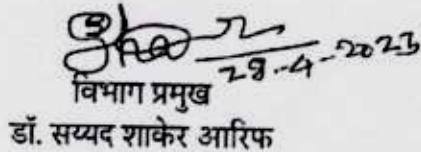 28-4-2023
विभाग प्रमुख
डॉ. सय्यद शाकेर आरिफ